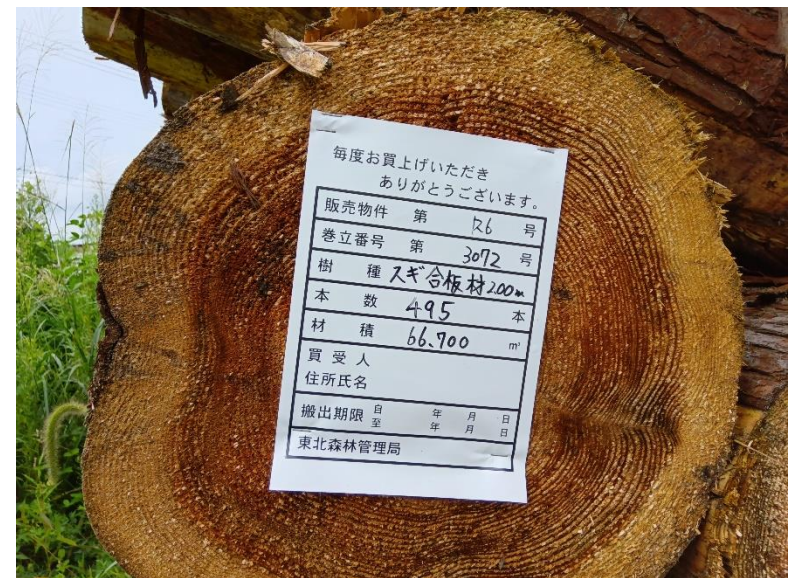 毎度お買上げいただき
ありがとうございます。
販売物件 第 R6 号
巻立番号 第 3072 号
樹種 スギ合板材2.00m
本数 495 本
材積 66.700 m³
買受人
住所氏名
搬出期限 自 年 月 日
至 年 月 日
東北森林管理局